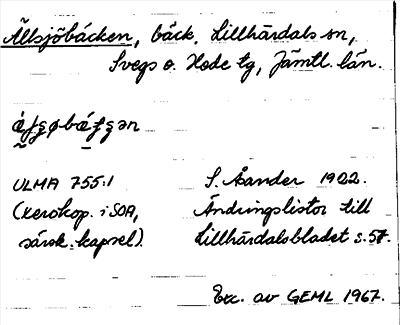 Ällsjöbäcken, bäck. Lillhärdals sn,
Svegs o. Hede tg, Jämtl. län.
ULMA 755:1 S. Åander 1922.
(xerokop. i SOA, Ändringslistor till
särsk. kapsel). Lillhärdalsbladet s. 57.
Exc. av GEML 1967.